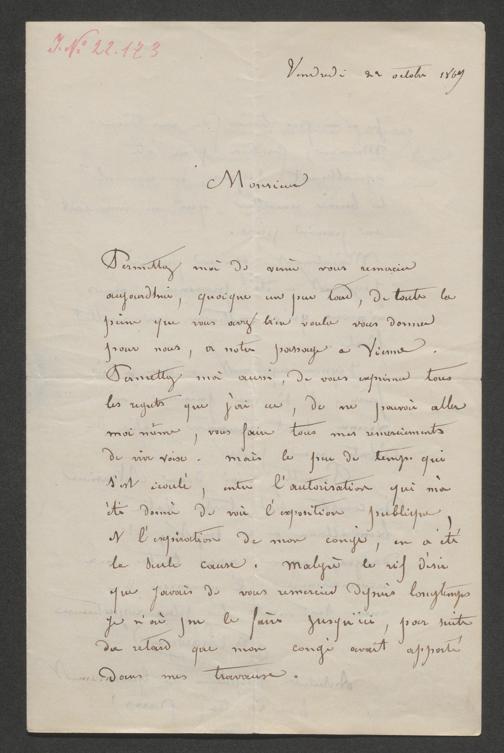 J. No 22.173
Vendredi 22 octobre 1869
Monsieur
Permettez moi de venir vous remercier
aujourdhui, quoique un peu tard, de toute la
peine que vous avez bien voulu vous donner
pour nous, a notre passage a Vienne.
Permettez moi aussi, de vous exprimer tous
les regrets que j'ai eu, de ne pouvoir aller
moi même, vous faire tous mes remerciements
de vive voix. mais le peu de temps qui
s'est écoulé, entre l'autorisation qui m'a
été donné de voir l'exposition publique,
et l'expiration de mon congé, en a été
la seule cause. Malgré le vif désir
que j'avais de vous remercier depuis longtemps
je n'ai pu le faire jusqu'ici, par suite
du retard que mon congé avait apporté
dans mes travaux.